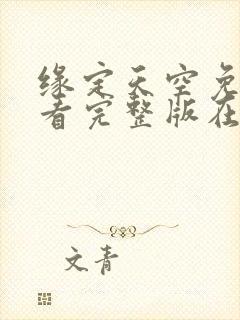 缘定天空免
看完整版在
文青